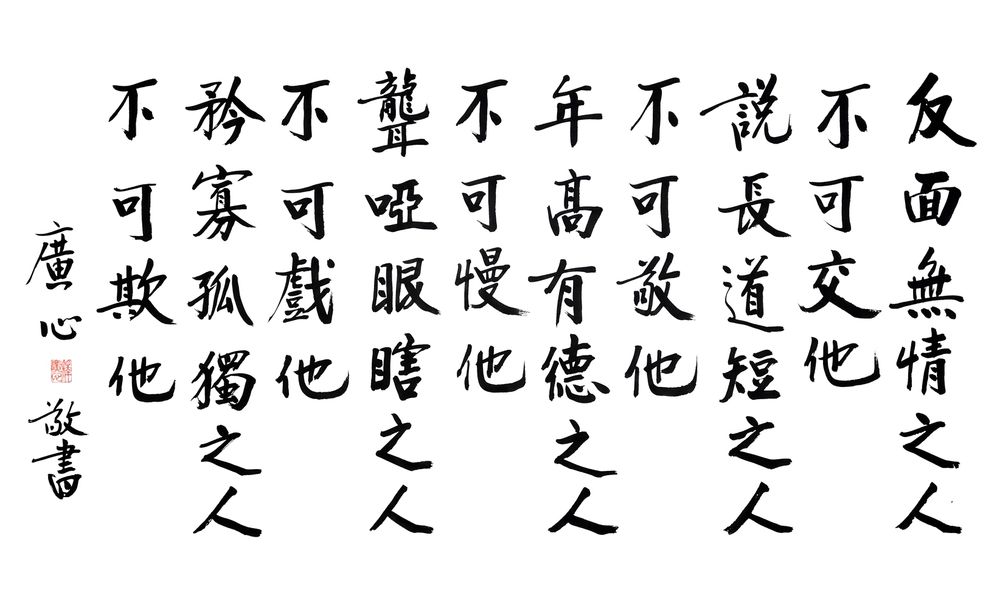 反面無情之人
不可交他
説長道短之人
不可敬他
年高有德之人
不可慢他
聾啞眼瞎之人
不可戲他
矜寡孤獨之人
不可欺他
廣心
敬書